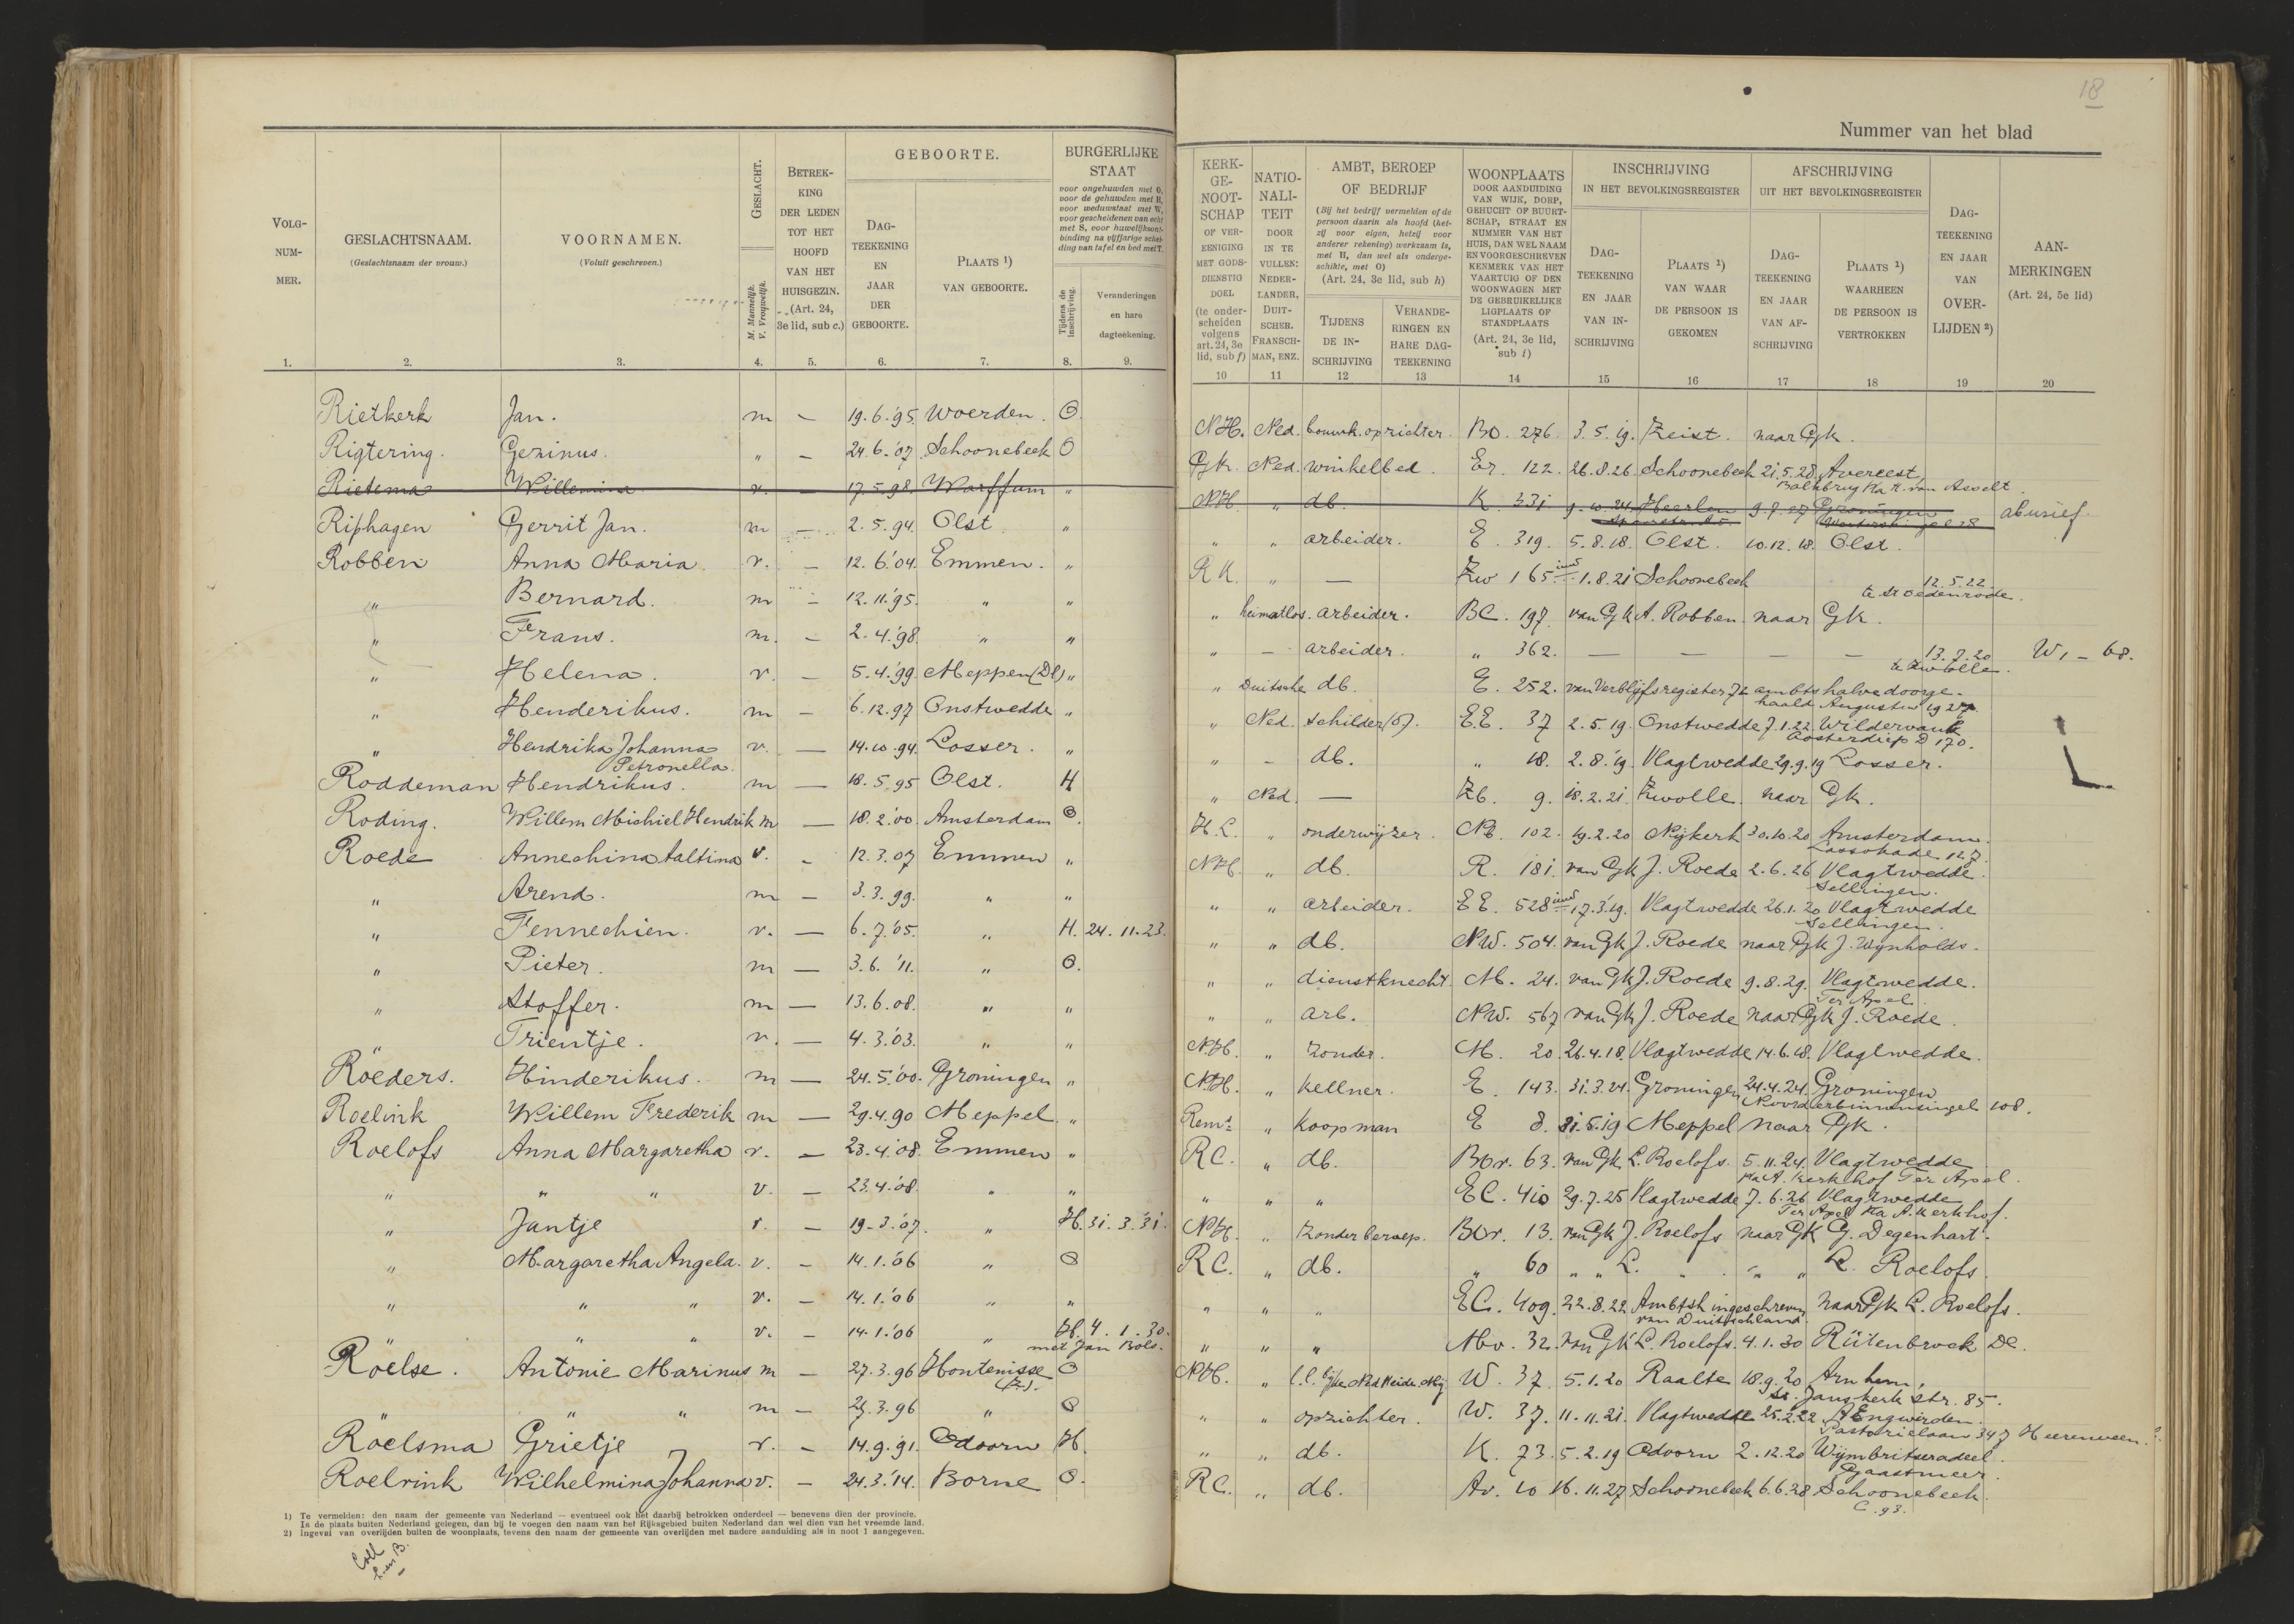 18
Nummer van het blad
VOLG-NUM-MER.
GESLACHTSNAAM.
(Geslachtsnaam der vrouw.)
VOORNAMEN.
(Voluit geschreven.)
GESLACHT.
M. Mannelijk.
V. Vrouwelijk.
BETREK-KING DER LEDEN TOT HET HOOFD VAN HET HUISGEZIN.
(Art. 24, 3e lid, sub c.)
GEBOORTE.
DAG-TEEKENING EN JAAR DER GEBOORTE.
PLAATS 1) VAN GEBOORTE.
BURGERLIJKE STAAT
voor ongehuwden met O, voor de gehuwden met H, voor weduwstaat met W, voor gescheidenen van echt met S, voor huwelijksont-binding na vijfjarige schei-ding van tafel en bed met T.
Tijdens de inschrijving.
Veranderingen en hare dagteekening.
KERK-GE-NOOT-SCHAP OF VER-EENIGING MET GODS-DIENSTIG DOEL
(te onder-scheiden volgens art. 24, 3e lid, sub f)
NATIO-NALI-TEIT DOOR IN TE VULLEN: NEDER-LANDER, DUIT-SCHER. FRANSCH-MAN, ENZ.
AMBT, BEROEP OF BEDRIJF
(Bij het bedrijf vermelden of de persoon daarin als hoofd (het-zij voor eigen, hetzij voor anderer rekening) werkzaam is, met H, dan wel als onderge-schikte, met O)
(Art. 24, 3e lid, sub h)
TIJDENS DE IN-SCHRIJVING
VERANDE-RINGEN EN HARE DAG-TEEKENING
WOONPLAATS DOOR AANDUIDING VAN WIJK, DORP, GEHUCHT OF BUURT-SCHAP, STRAAT EN NUMMER VAN HET HUIS, DAN WEL NAAM EN VOORGESCHREVEN KENMERK VAN HET VAARTUIG OF DEN WOONWAGEN MET DE GEBRUIKELIJKE LIGPLAATS OF STANDPLAATS
(Art. 24, 3e lid, sub i)
INSCHRIJVING IN HET BEVOLKINGSREGISTER
DAG-TEEKENING EN JAAR VAN IN-SCHRIJVING
PLAATS 1) VAN WAAR DE PERSOON IS GEKOMEN
AFSCHRIJVING UIT HET BEVOLKINGSREGISTER
DAG-TEEKENING EN JAAR VAN AF-SCHRIJVING
PLAATS 1) WAARHEEN DE PERSOON IS VERTROKKEN
DAG-TEEKENING EN JAAR VAN OVER-LIJDEN 2)
AAN-MERKINGEN
(Art. 24, 5e lid)
1. 2. 3. 4. 5. 6. 7. 8. 9. 10 11 12 13 14 15 16 17 18 19 20
Rietkerk Jan. m - 19.6.'95. Woerden. O. N.H. Ned. bouwk. opzichter. BO. 276. 3.5.19. Zeist. naar Gk.
Rigtering. Gezinus. " - 24.6.'07 Schoonebeek O Gk. Ned. winkelbed. Er. 122. 26.8.26 Schoonebeek 21.5.28 Avereest
Balkbrug Ka H. van Asselt.
Rietema Willemina v. - 17.5.98. Warffum " N.H. " db. K. 331 9.10.24 Heerlen 9.7.27 Groningen abusief.
Riphagen Gerrit Jan. m - 2.5.94. Olst " " " arbeider. E. 319. 5.8.18. Olst. 10.12.18. Olst.
Robben Anna Maria. v. - 12.6.'04. Emmen. " R K. " - Zw 165 1.8.21 Schoonebeek 12.5.22.
te St Oedenrode.
" Bernard. m - 12.11.'95. " " " heimatlos. arbeider. BC. 197. van Gk A. Robben naar Gk.
" Frans. m. - 2.4.'98. " " " - arbeider. " 362. - - - - 13.7.20 W, - 68.
te Zwolle.
" Helena. v. - 5.4.'99. Meppen (Dl) " " Duitsche db. E. 252. van Verblijfsregister 72 ambtshalve doorge-
haald Augustus 1927.
" Henderikus. m - 6.12.97 Onstwedde " " Ned. schilder (O). EE. 37 2.5.19. Onstwedde 7.1.22 Wildervank
Oosterdiep D 170.
" Hendrika Johanna v. - 14.10.94. Losser. " " - db. " 18. 2.8.'19. Vlagtwedde 29.9.19 Losser.
Petronella.
Roddeman Hendrikus. m - 18.5.95 Olst. H " Ned. - Zb. 9. 18.2.21. Zwolle. naar Gk.
Roding. Willem Michiel Hendrik m - 18.2.'00. Amsterdam O. H.L. " onderwijzer. NB. 102. 19.2.20 Nijkerk 30.10.20 Amsterdam.
127.
Roede Annechina taltina v. - 12.3.07 Emmen " N.H. " db. R. 181. van Gk J. Roede 2.6.26 Vlagtwedde.
Sellingen.
" Arend. m - 3.3.99. " " " " arbeider. EE. 528 17.3.'19. Vlagtwedde 26.1.20 Vlagtwedde
Sellingen.
" Fennechien. v. - 6.7.'05. " H. 24.11.23. " " db. NW. 504. van Gk J. Roede naar Gk J. Wijnholds.
" Pieter. m - 3.6.'11. " O. " " dienstknecht. M. 24. van Gk J. Roede 9.8.29. Vlagtwedde.
Ter Apel.
" Stoffer. m - 13.6.08. " " " " arb. NW. 567 van Gk J. Roede naar Gk J. Roede.
" Trientje. v. - 4.3.'03. " " N.H. " zonder. M. 20. 26.4.18. Vlagtwedde 14.6.18. Vlagtwedde.
Roeders. Hinderikus. m - 24.5.'00. Groningen " N.H. " kellner. E. 143. 31.3.24. Groningen 24.4.24. Groningen
Noorderbinnensingel 108.
Roelink Willem Frederik m - 29.4.90 Meppel. " Remt. " Koopman E 8. 31.5.19 Meppel naar Gk.
Roelofs Anna Margaretha v. - 23.4.'08. Emmen " RC. " db. BOr. 63. van Gk L. Roelofs. 5.11.24. Vlagtwedde
Ka A. Kerkhof Ter Apel.
" " " v. - 23.4.'08. " " " " " EC. 410 29.7.25 Vlagtwedde 7.6.26 Vlagtwedde
Ter Apel Ka A. Kerkhof.
" Jantje v. - 19.3.'07. " H. 31.3.'31. N.H. " zonder beroep. BOr. 13. van Gk J. Roelofs naar Gk G. Degenhart.
" Margaretha Angela. v. - 14.1.'06 " O RC. " db. " 60 " " L. " " " L. Roelofs.
" " " v. - 14.1.'06 " " " " " EC. 409. 22.8.22 Ambtsh ingeschreven naar Gk L. Roelofs.
van Duitschland.
" " " v. - 14.1.'06 " H. 4.1.30. " " " Mv. 32. van Gk L. Roelofs. 4.1.30 Rütenbrock De.
met Jan Bols.
Roelse. Antonie Marinus m - 27.3.96 Hontenisse O N.H. " Ned Heide Mij W. 37. 5.1.20 Raalte 18.9.20 Arnhem,
(Z.). St. Janskerkstr. 85.
" " " m - 27.3.96 " O " " opzichter. W. 37. 11.11.21. Vlagtwedde 25.2.22 Engwirden.
Pastorielaan 347 Heerenveen.
Roelsma Grietje v. - 14.9.'91. Odoorn H. " " db. K. 73. 5.2.19 Odoorn 2.12.20 Wijmbritseradeel.
Gaastmeer.
Roelvink Wilhelmina Johanna v. - 24.3.'14. Borne O. RC. " db. Av. 10 16.11.27 Schoonebeek 6.6.28 Schoonebeek.
C. 93.
1) Te vermelden: den naam der gemeente van Nederland — eventueel ook het daarbij betrokken onderdeel — benevens dien der provincie.
Is de plaats buiten Nederland gelegen, dan bij te voegen den naam van het Rijksgebied buiten Nederland dan wel dien van het vreemde land.
2) Ingeval van overlijden buiten de woonplaats, tevens den naam der gemeente van overlijden met nadere aanduiding als in noot 1 aangegeven.
Coll
h. en B.